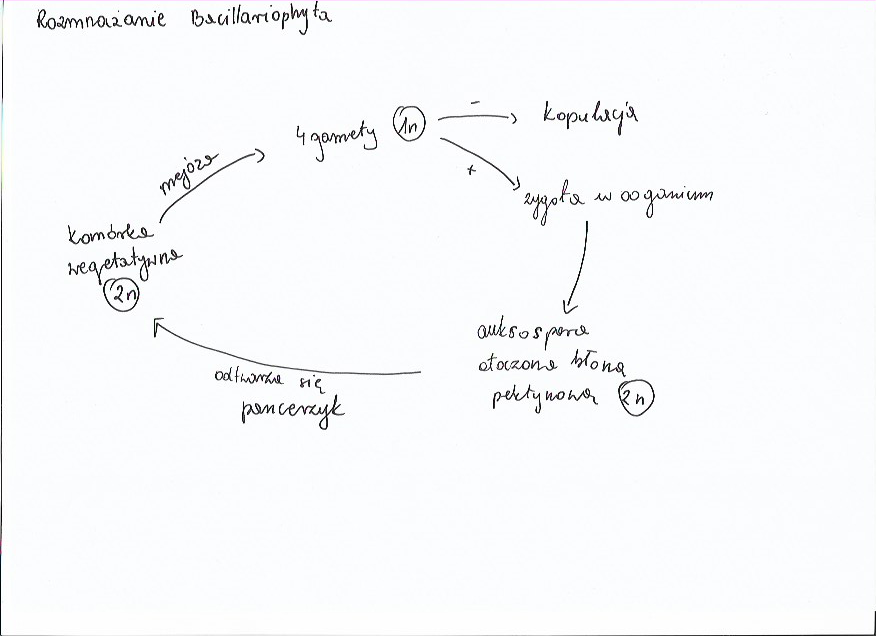 Rozmnażanie Bacillariophyta
4 gamety 1n
-
kopulacja
mejoza
+
zygota w oogonium
komórka
wegetatywna
2n
auksospora
otoczona błoną
pektynową 2n
odtwarza się
pancerzyk